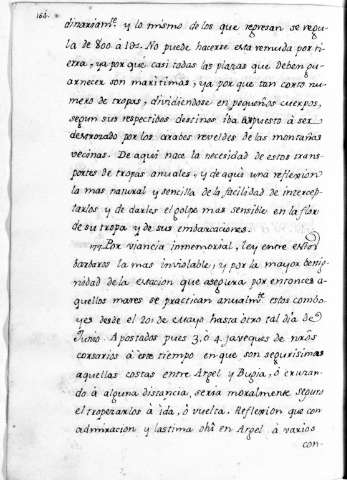 166.
dinariamte. y lo mismo de los que regresan se regu-
la de 800 à 10z. No puede hacerse esta remuda por ti-
erra, ya por que casi todas las plazas que deben gu-
arnecer son maritimas, ya por que tan corto nu-
mero de tropas, dividiendose en pequeños cuerpos,
segun sus respectibos destinos iba expuesto à ser
destrozado por los arabes reveldes de las montañas
vecinas. De aqui nace la necesidad de estos trans-
portes de tropas anuales, y de aqui una reflexion
la mas natural y sencilla de la facilidad de intercep-
tarlos y de darles el golpe mas sensible en la flor
de su tropa y de sus embarcaciones.
Por viancia inmemorial, ley entre estos
barbaros la mas inviolable, y por la mayor benig-
nidad de la estacion que asegura por entonces a-
quellos mares se practican anualmte. estos combo-
yes desde el 20 de Mayo hasta otro tal dia de
Junio. Apostados pues 3, ò 4 javeques de nros
corsarios à este tiempo en que son segurisimas
aquellas costas entre Argel y Bugia, ò cruzan-
do à alguna distancia, seria moralmente seguro
el tropezarlos à ida, ò vuelta. Reflexion que con
admiracion y lastima ohi en Argel à varios
con-